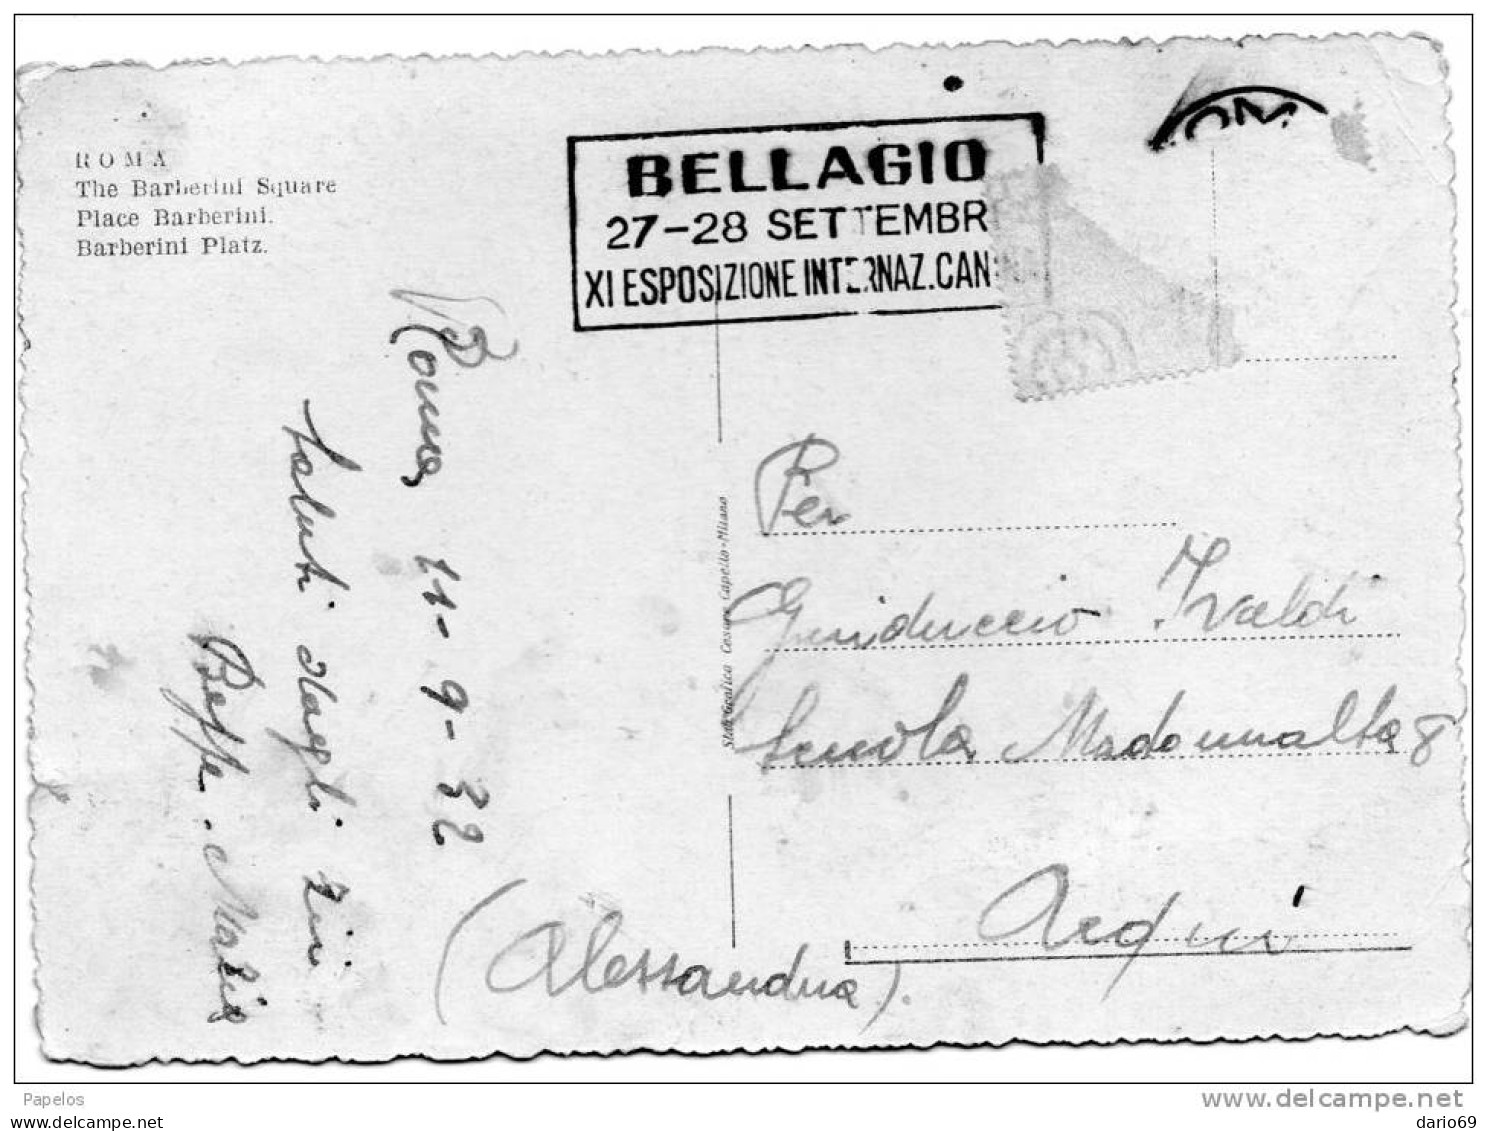 ROMA
The Barberini Square
Place Barberini.
Barberini Platz.
BELLAGIO
27-28 SETTEMBR
XI ESPOSIZIONE INTERNAZ.CAN
OM
Roma, 11-9-32
Saluti dagli zii
Beppe. Maria
Stab. Grafico Cesare Capello-Milano
Per
Guiduccio Ivaldi
Scuola Madonnalta 8
Acqui
(Alessandria).
Papelos
www.delcampe.net
http://www.delcampe.net
dario69